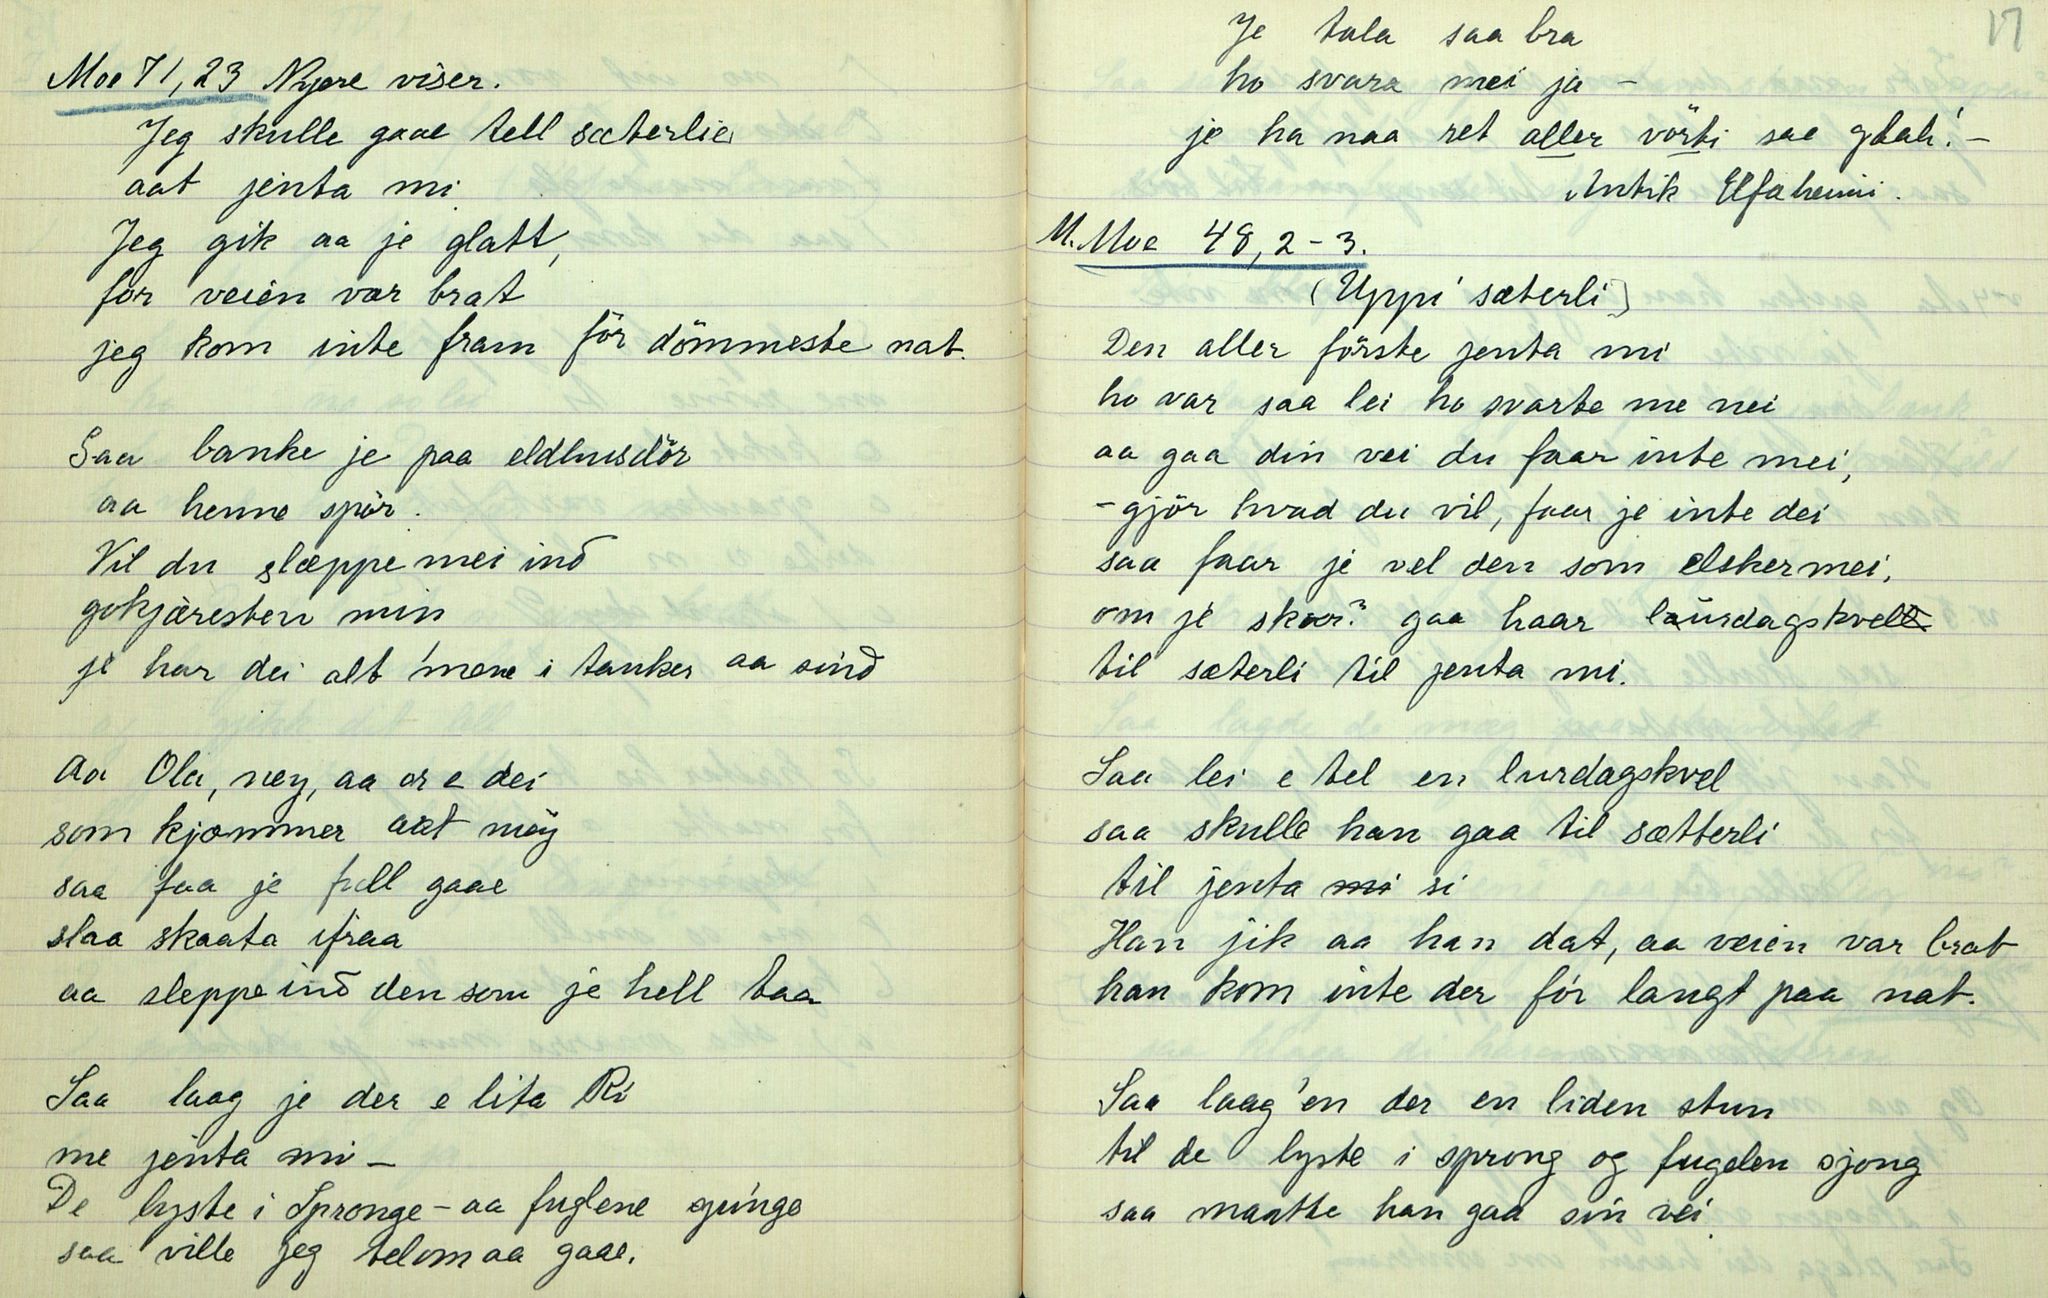 Moe 71,23 Nyere viser.
Jeg skulle gaae tell sæterlie
aat jenta mi
Jeg gik aa je glatt,
for veien var brat
jeg kom inte fram för dömmeste nat.
Saa banke je paa eldhusdör
aa henne spör.
Vil du slæppe mei ind
gokjæresten min
je har dei alt mene i tanker aa sind
Aa Ola, ney, aa er e dei
som kjæmmer aat mey
saa faa je full gaae
slaa skaata ifraa
aa sleppe ind den som je hell taa
Saa laag je der e lita Ri
me jenta mi –
De lyste i Spronge – aa fuglene gjunge
saa ville jeg telom aa gaae.
17
Je tala saa bra
ho svara mei ja –
je ha naa ret aller vörti sae glah! –
Antik Elfaheimi.
M. Moe 48, 2-3.
(Uppi sæterli)
Den aller förste jenta mi
ho var saa lei ho svarte me nei
aa gaa din vei du faar inte mei,
– gjör hvad du vil, faar je inte dei
saa faar je vel den som elsker mei,
om je skaer? gaa haar laurdagskvell
til sæterli til jenta mi.
Saa lei e tel en lurdagskvel
saa skulle han gaa til sætterli
til jenta mi si
Han jik aa han dat, aa veien var brat
han kom inte der för langt paa nat.
Saa laag'en der en liden stun
til de lyste i sprong og fugelen sjong
saa maatte han gaa sin vei.